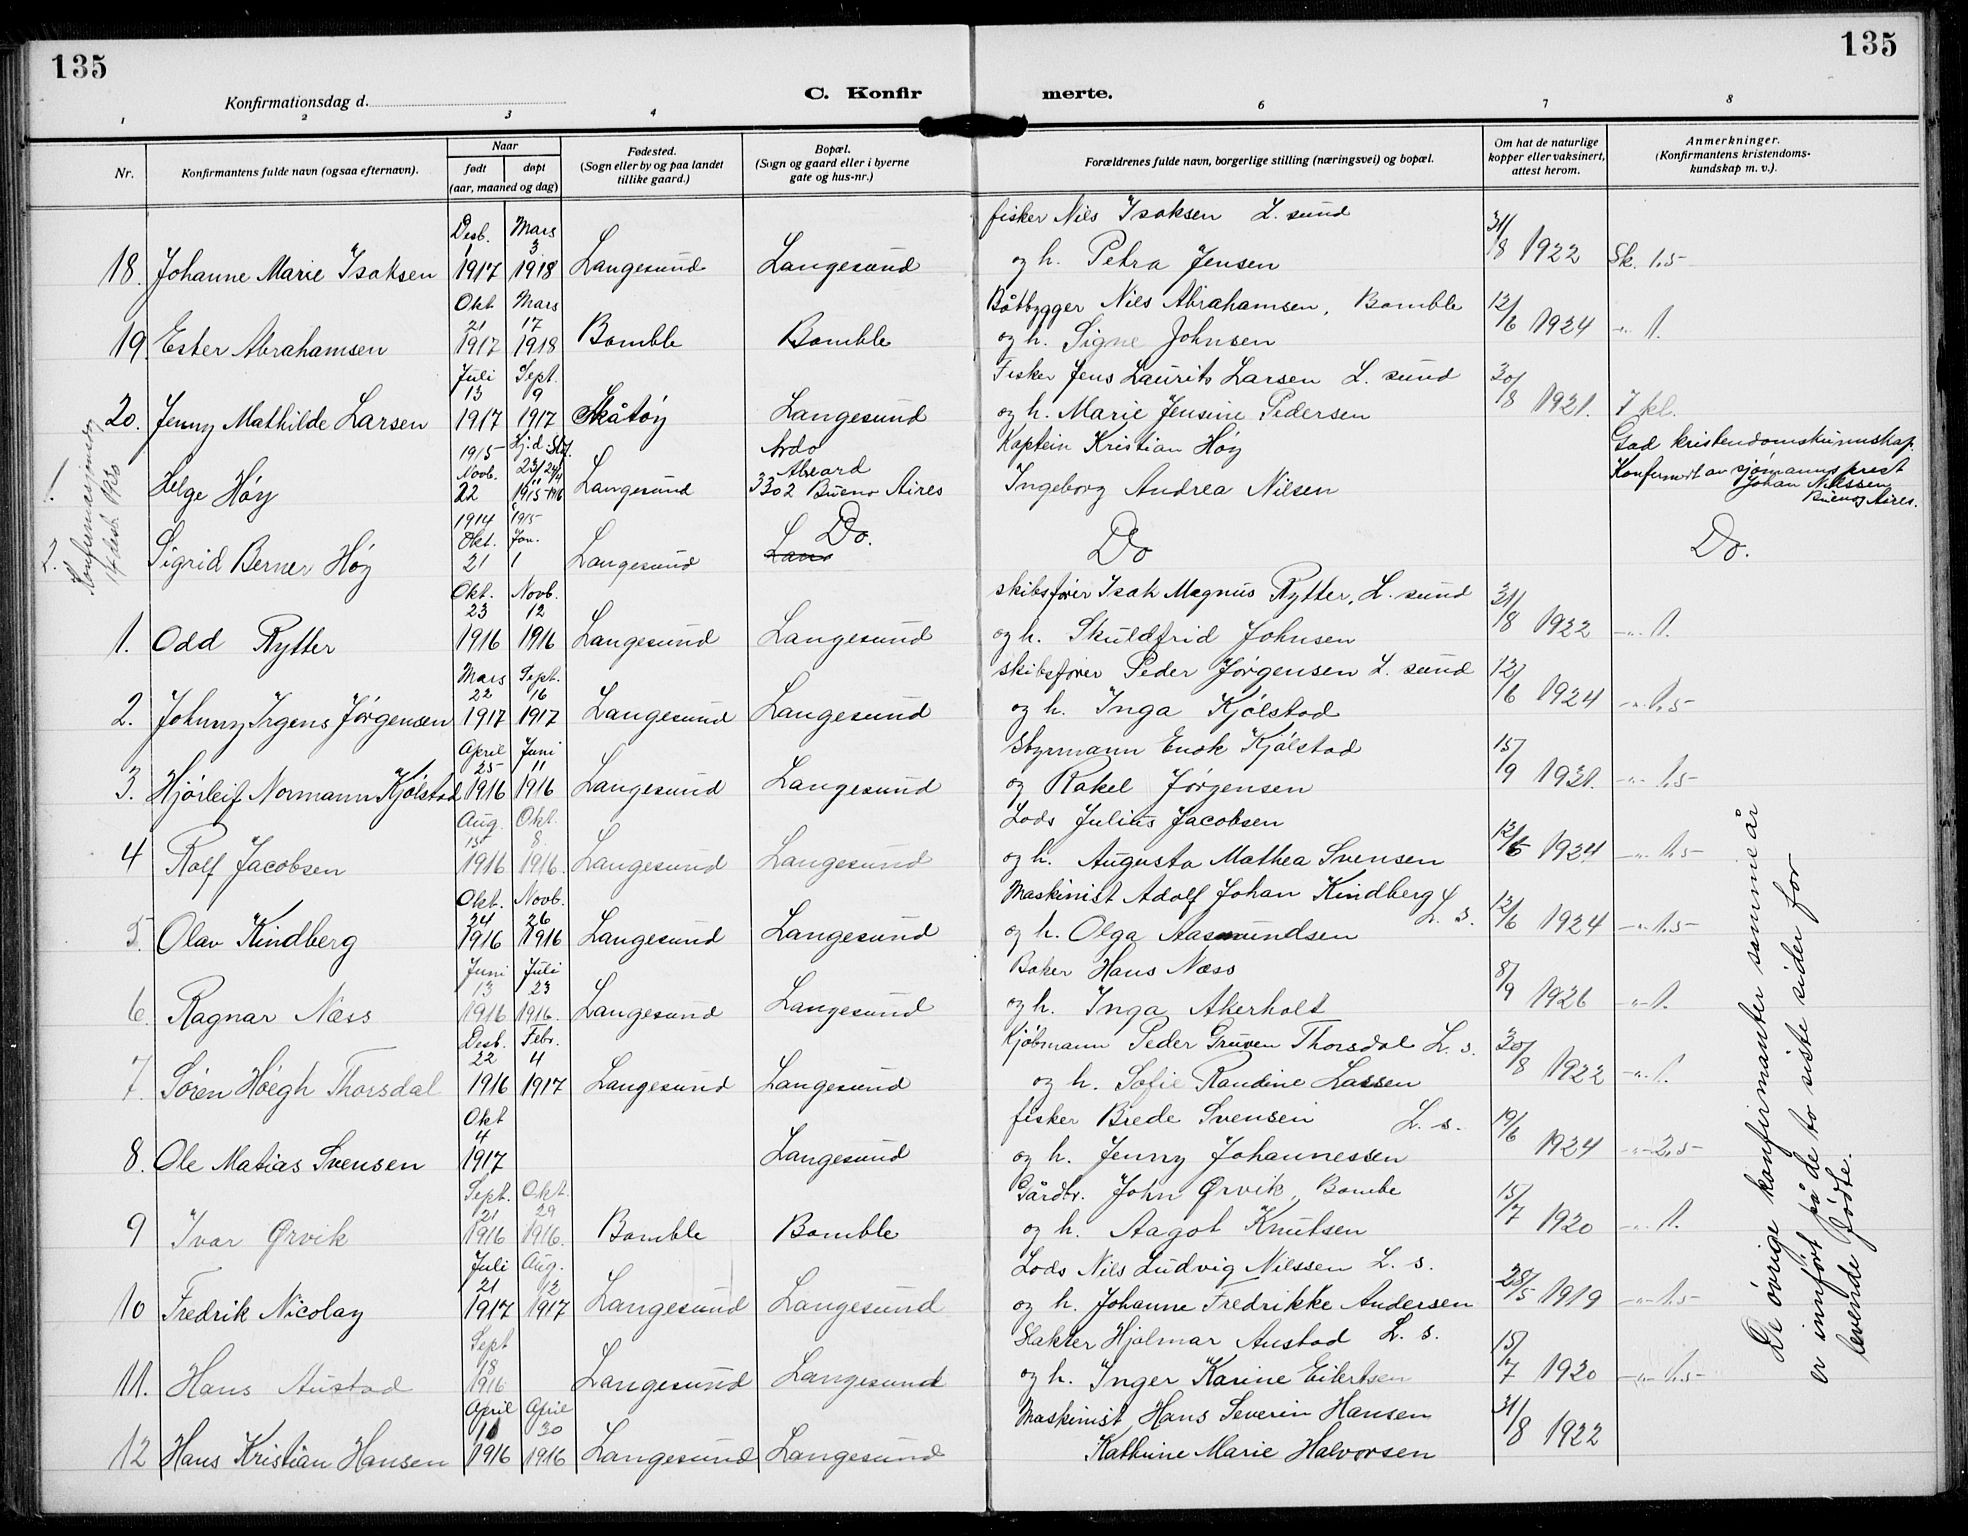 135
135
Konfirmationsdag d.
C. Konfir
merte.
1 2 3 4 6 7 8
Nr.
Konfirmantens fulde navn (ogsaa efternavn).
Naar
født
døpt
(aar, maaned og dag)
Fødested.
(Sogn eller by og paa landet
tillike gaard.)
Bopæl.
(Sogn og gaard eller i byerne
gate og hus-nr.)
Forældrenes fulde navn, borgerlige stilling (næringsvei) og bopæl.
Om hat de naturlige
kopper eller vaksinert,
attest herom.
Anmerkninger.
(Konfirmantens kristendoms-
kundskap m. v.).
Desb. Mars fisker Nils Isaksen L. sund
1 3
18. Johanne Marie Isaksen 1917 1918 Langesund Langesund og h. Petra Jensen 31/8 1922 Sk. 1.5
Okt Mars Båtbygger Nils Abrahamsen, Bamble
21 17
19 Ester Abrahamsen 1917 1918 Bamble Bamble og h. Signe Johnsen 12/6 1924 -"- 1.
Juli Sept. Fisker Jens Laurits Larsen L. sund
13 9
20. Jenny Mathilde Larsen 1917 1917 Skåtøy Langesund og h. Marie Jensine Pedersen 30/8 1921. 7 kl.
Konfirmasjonsdag
14 desb. 1930
1915 Hj.d. Kaptein Kristian Høy God kristendomskunnskap.
1. Helge Høy Novb. 22 Langesund Avda Alveard 3302 Bueno Aires Ingeborg Andrea Nilsen Konfirmert av sjømannsprest
Johan Nilssen
Buenos Aires.
1914 1915
Okt. Jan.
2. Sigrid Berner Høy 21 1 Langesund Do. Do Do.
Okt. Novb. skibsfører Isak Magnus Rytter, L. sund
23 12
1. Odd Rytter 1916 1916 Langesund Langesund og h. Skuldfrid Johnsen 31/8 1922 -"- 1.
Mars Sept. skibsfører Peder Jørgensen L. sund
22 16
2. Johnny Irgens Jørgensen 1917 1917 Langesund Langesund og h. Inga Kjølstad 12/6 1924 -"- 1.5
April Juni Styrmann Enok Kjølstad
25 11
3. Hjørleif Normann Kjølstad 1916 1916 Langesund Langesund og Rakel Jørgensen 15/9 1921. -"- 1.5
Aug. Okt. Lods Julius Jacobsen
15 8.
4 Rolf Jacobsen 1916 1916 Langesund Langesund og h. Augusta Mathea Svensen 12/6 1924 -"- 1.5
Okt. Novb. Maskinist Adolf Johan Kindberg L. s.
24 26
5. Olav Kindberg 1916 1916 Langesund Langesund og h. Olga Aasmundsen 12/6 1924 -"- 1.5
Juni Juli Baker Hans Næss
13 23
6. Ragnar Næss 1916 1916. Langesund Langesund og h. Inga Akerholt 8/9 1926 -"- 1.
Desb. Febr. Kjøbmann Peder Gruven Thorsdal L. s.
22 4
7. Søren Høegh Thorsdal 1916 1917 Langesund Langesund og h. Sofie Randine Lassen 30/8 1922 -"- 1.
Okt fisker Brede Svensen L. s.
4
8. Ole Matias Svensen 1917 Langesund og h. Jenny Johannessen 19/6 1924 -"- 2.5
Sept. Okt. Gårdbr. John Ørvik, Bambe
21 29
9 Ivar Ørvik 1916 1916. Bamble Bamble og h. Aagot Knutsen 15/7 1920 -"- 1.
Juli Aug. Lods Nils Ludvig Nilssen L. s.
21 12
10 Fredrik Nicolay 1917 1917 Langesund Langesund og h. Johanne Fredrikke Andersen 28/5 1919 -"- 1.5
Sept Slakter Hjalmar Austad L. s.
18
11. Hans Austad 1916 Langesund Langesund og h. Inger Karine Eilertsen 15/7 1920 -"- 1.5
April April Maskinist Hans Severin Hansen
11 30
12 Hans Kristian Hansen 1916 1916 Langesund Langesund Kathrine Marie Halvorsen 31/8 1922
De øvrige konfirmanter samme år
er innført på de to siste sider for
levende fødte.